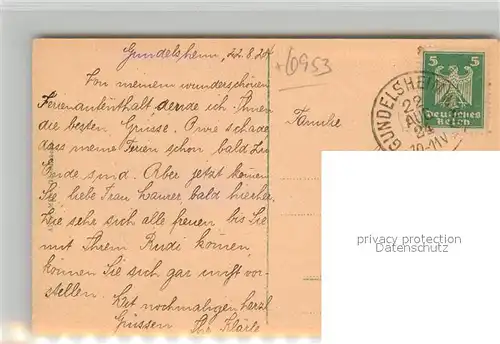 Gundelsheim, 22.8.24
+6953
Von meinem wunderschönen
Ferienaufenthalt sende ich Ihnen
die besten Grüsse. O wie schade
dass meine Ferien schon bald zu
Ende sind. Aber jetzt können
Sie liebe Frau Laurer bald hierher.
Wie sehr sich alle freuen bis Sie
mit Ihrem Rudi kommen,
können Sie sich gar nicht vor-
stellen. Mit nochmaligen herzl
Grüssen Ihr Klärle
Familie
5 5
Deutsches
Reich
GUNDELSHEIM
22
AUG
24
10-11V
privacy protection
Datenschutz